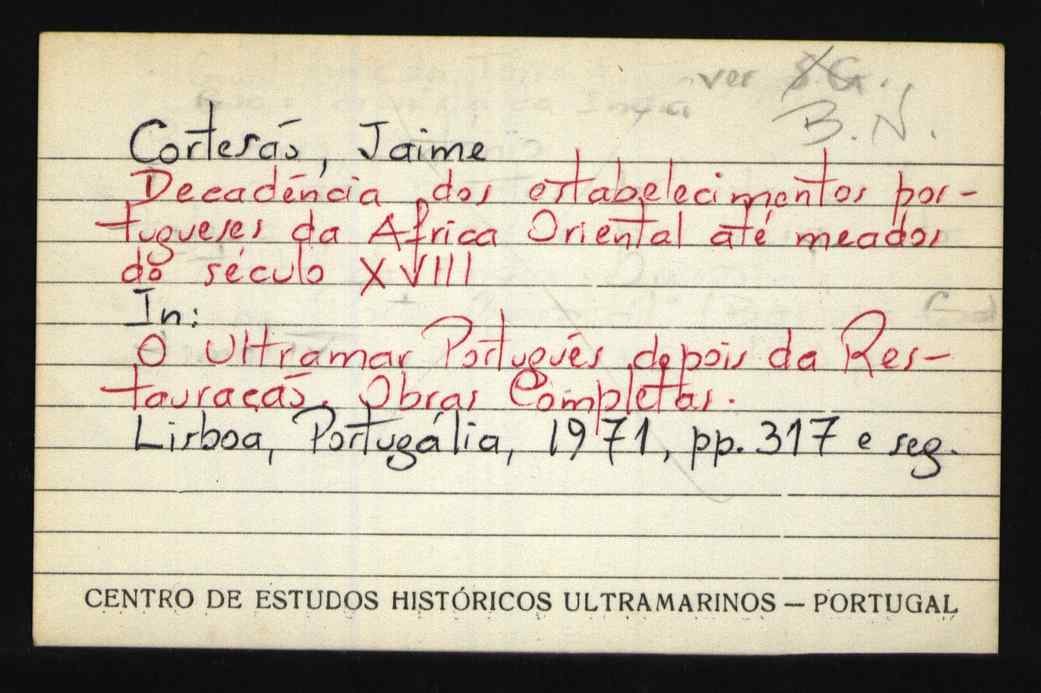 ver S.G.,
B.N.
Cortesão, Jaime
Decadência dos estabelecimentos por-
tugueses da Africa Oriental até meados
do século XVIII
In:
O Ultramar Português depois da Res-
tauração. Obras Completas.
Lisboa, Portugália, 1971, pp. 317 e seg.
CENTRO DE ESTUDOS HISTÓRICOS ULTRAMARINOS — PORTUGAL